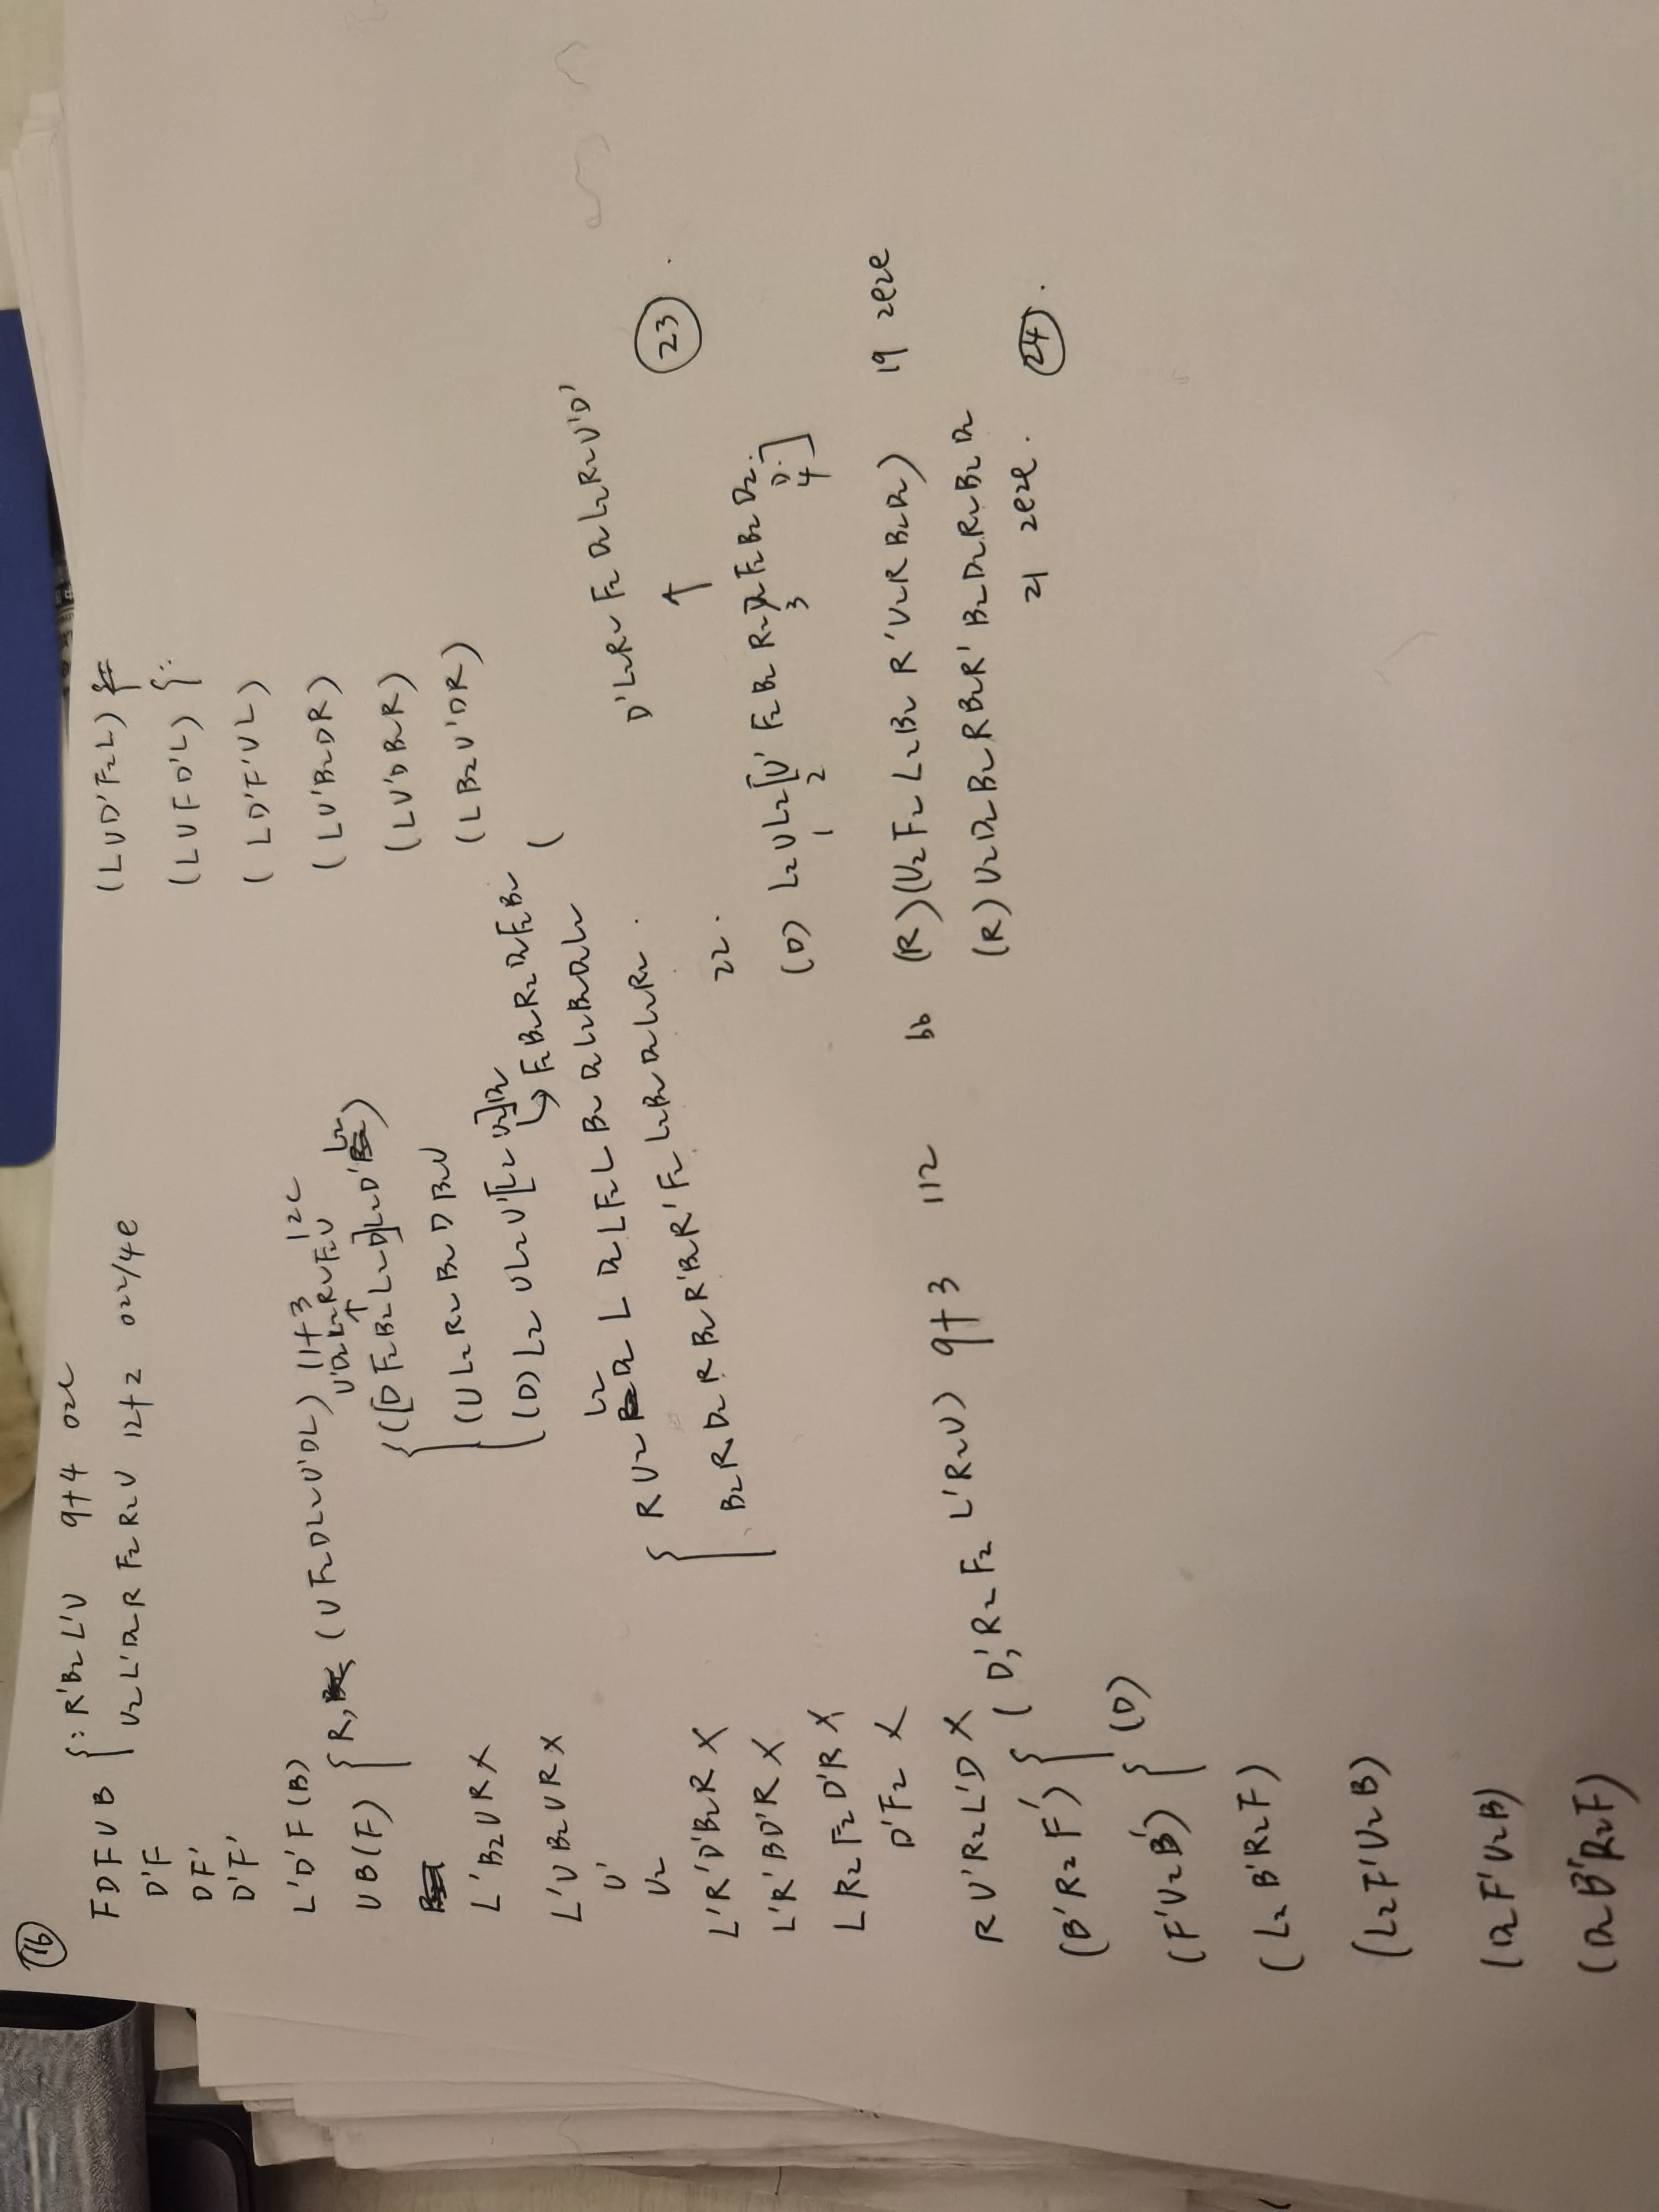 16
F D F U B { : R' B2 L' U 9+4 02c
D' F U2 L' D2 R F2 R2 U 12+2 022/4e
D F'
D' F'
L' D' F (B)
U B (F) { R, (U F2 D L2 U' D L) 11+3 12c
U' D2 L2 R2 F2 U
{ ([D F2 B2 L2 D] L2 D' L2)
(U L2 R2 B2 D B2 U
L' B2 U R X
(D) L2 U L2 U' [L2 U2] D2
↳ F2 B2 R2 D2 F2 B2
L' U B2 U R X
U'
U2
{ R U2 L2 D2 L D2 L F2 L B2 D2 L2 B2 D2 L2
B2 R D2 R B2 R' B2 R' F2 L2 B2 D2 L2 R2 .
L' R' D' B2 R X
L' R' B D' R X
L R2 F2 D' R X
D' F2 X
R U' R2 L' D X
(B' R2 F') { (D', R2 F2 L' R2 U) 9+3 112
(F' U2 B') { (D)
(L2 B' R2 F)
(L2 F' U2 B)
(D2 F' U2 B)
(D2 B' R2 F)
(L U D' F2 L) {
(L U F D' L) { :
(L D' F' U L)
(L U' B2 D R)
(L U' D B2 R)
(L B2 U' D R)
(
D' L2 R2 F2 D2 L2 R2 U' D'
↑ 23 .
22 .
(D) L2 U L2 [U' F2 B2 R2 D2 F2 B2 D2 . D . ]
1 2 3 4
bb (R) (U2 F2 L2 B2 R' U2 R B2 D2) 19 2e2e
(R) U2 D2 B2 R B2 R' B2 D2 R2 B2 D2
21 2e2e . 24 .